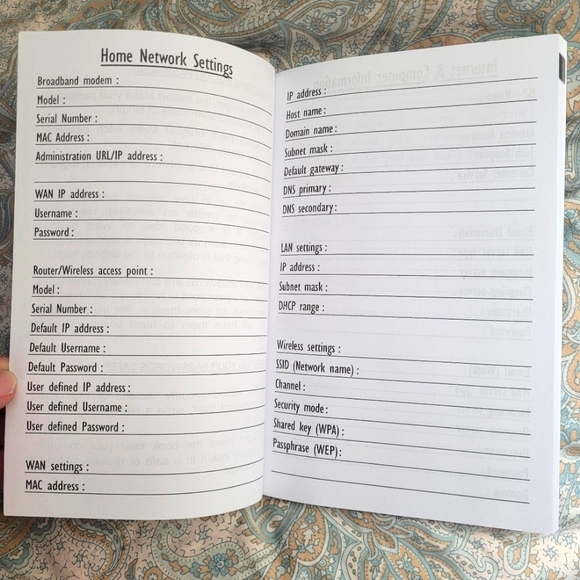 Home Network Settings
Broadband modem :
Model :
Serial Number :
MAC Address :
Administration URL/IP address :
WAN IP address :
Username :
Password :
Router/Wireless access point :
Model :
Serial Number :
Default IP address :
Default Username :
Default Password :
User defined IP address :
User defined Username :
User defined Password :
WAN settings :
MAC address :
IP address :
Host name :
Domain name :
Subnet mask :
Default gateway :
DNS primary :
DNS secondary :
LAN settings :
IP address :
Subnet mask :
DHCP range :
Wireless settings :
SSID (Network name) :
Channel :
Security mode :
Shared key (WPA) :
Passphrase (WEP) :